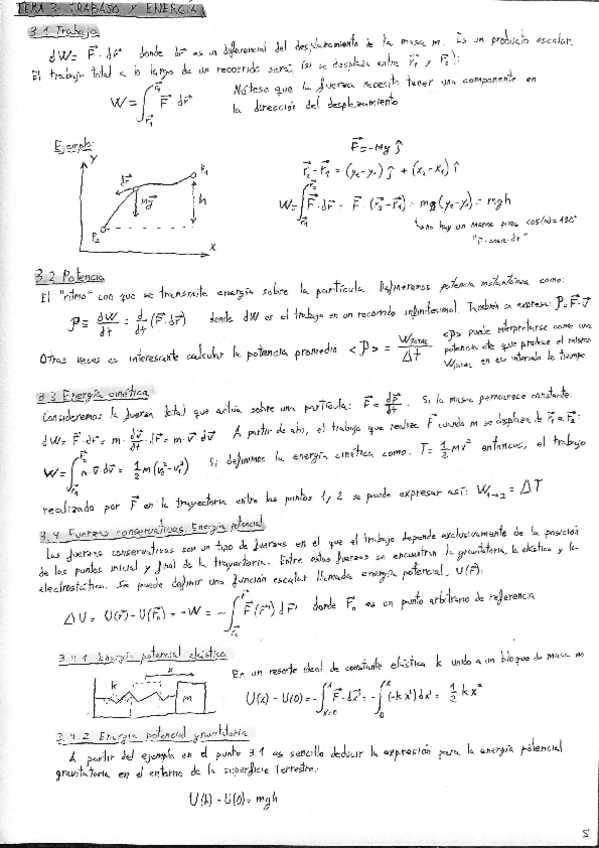 TEMA 3: TRABAJO Y ENERGÍA
3.1 Trabajo
dW = F⃗ · dr⃗ donde dr⃗ es un diferencial del desplazamiento de la masa m. Es un producto escalar.
El trabajo total a lo largo de un recorrido será (si se desplaza entre r⃗₁ y r⃗₂):
W = ∫_{r⃗₁}^{r⃗₂} F⃗ · dr⃗ Nótese que la fuerza necesita tener una componente en
la dirección del desplazamiento
Ejemplo:
Y
dr⃗
mg⃗
h
P₁
P₂
X
F⃗ = -mg ĵ
r⃗₂ - r⃗₁ = (y₂-y₁) ĵ + (x₂-x₁) î
W = ∫_{r⃗₁}^{r⃗₂} F⃗ · dr⃗ = F⃗ · (r⃗₂ - r⃗₁) = mg (y₂-y₁) = mgh
no hay un menos pues
3.2 Potencia
El "ritmo" con que se transmite energía sobre la partícula. Definiremos potencia instantánea como:
P ≡ dW/dt = d/dt (F⃗ · dr⃗) donde dW es el trabajo en un recorrido infinitesimal. También se expresa: P = F⃗ · v⃗
Otras veces es interesante calcular la potencia promedio <P> = W_TOTAL/Δt
<P> puede interpretarse como una
potencia cte que produce el mismo
W_TOTAL en ese intervalo de tiempo
3.3 Energía cinética
Consideremos la fuerza total que actúa sobre una partícula: F⃗ = dp⃗/dt. Si la masa permanece constante:
dW = F⃗ · dr⃗ = m · dv⃗/dt · dr⃗ = m · v⃗ · dv⃗ A partir de ahí, el trabajo que realiza F⃗ cuando m se desplaza de r⃗₁ a r⃗₂:
W = ∫_{r⃗₁}^{r⃗₂} m · v⃗ · dv⃗ = 1/2 m (v₂² - v₁²) Si definimos la energía cinética como: T = 1/2 mv² entonces, el trabajo
realizado por F⃗ en la trayectoria entre los puntos 1 y 2 se puede expresar así: W₁→₂ = ΔT
3.4 Fuerzas conservativas. Energía potencial
Las fuerzas conservativas son un tipo de fuerzas en el que el trabajo depende exclusivamente de la posición
de los puntos inicial y final de la trayectoria. Entre estas fuerzas se encuentran la gravitatoria, la elástica y la
electrostática. Se puede definir una función escalar llamada energía potencial, U(r⃗):
ΔU = U(r⃗) - U(r⃗ₙ) = -W = -∫_{r⃗ₙ}^{r⃗} F⃗(r⃗') dr⃗' donde r⃗ₙ es un punto arbitrario de referencia
3.4.1 Energía potencial elástica
x
k
m
En un resorte ideal de constante elástica k unido a un bloque de masa m
U(x) - U(0) = -∫_{x=0}^{x} F⃗ · dx⃗' = -∫_{0}^{x} (-kx') dx' = 1/2 kx²
3.4.2 Energía potencial gravitatoria
A partir del ejemplo en el punto 3.1 es sencillo deducir la expresión para la energía potencial
gravitatoria en el entorno de la superficie Terrestre:
U(h) - U(0) = mgh
5